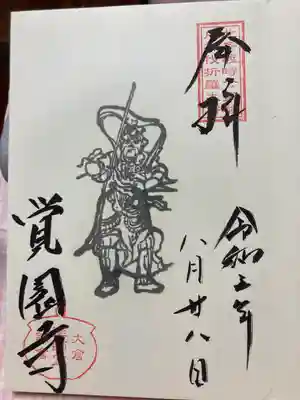 奉拝
令和三年
八月廿八日
覚園寺
大倉